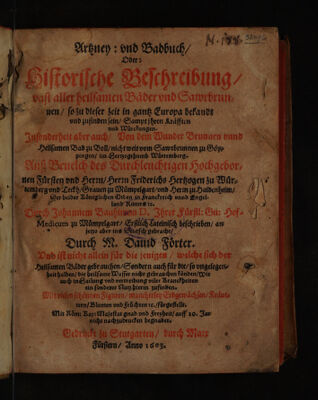 Artzney: vnd Badbuch/
Oder:
Historische Beschreibung/
vast aller heilsamen Bäder vnd Sawrbrun-
nen/ so zu dieser zeit in gantz Europa bekandt
vnd zufinden sein/ Sampt jhren Kräfften
vnd Würckungen.
Insonderheit aber auch/ Von dem Wunder Brunnen vnnd
Heilsamen Bad zu Boll/ nicht weit vom Sawrbrunnen zu Göp-
pingen/ im Hertzogthumb Würtemberg.
Auß Beuelch des Durchleuchtigen Hochgebor-
nen Fürsten vnd Herrn/ Herrn Friderichs Hertzogen zu Wür-
temberg vnd Teckh/ Grauen zu Mümpelgart/ vnd Herrn zu Haidenheim/
der beider Königlichen Orden in Franckreich vnnd Engel-
land Ritters rc.
Durch Johannem Bauhinum D. Ihrer Fürstl. Gn: Hof-
Medicum zu Mümpelgart/ Erstlich Lateinisch beschrieben/ an
jetzo aber ins Teutsch gebracht/
Durch M. Dauid Förter.
Vnd ist nicht allein für die jenigen/ welche sich der
Heilsamen Bäder gebrauchen/ Sondern auch für die/
Mit vielen schönen Figuren/ mancherley Erdgewächsen/ Kräu-
tern/ Blumen und Früchten rc. fürgestellt.
Mit Röm: Kay: Majestat gnad vnd Freyheit/ auff 10. Jar
nicht nachzudrucken begnadet.
Gedruckt zu Stutgarten/ durch Marx
Fürstern/ Anno 1603.